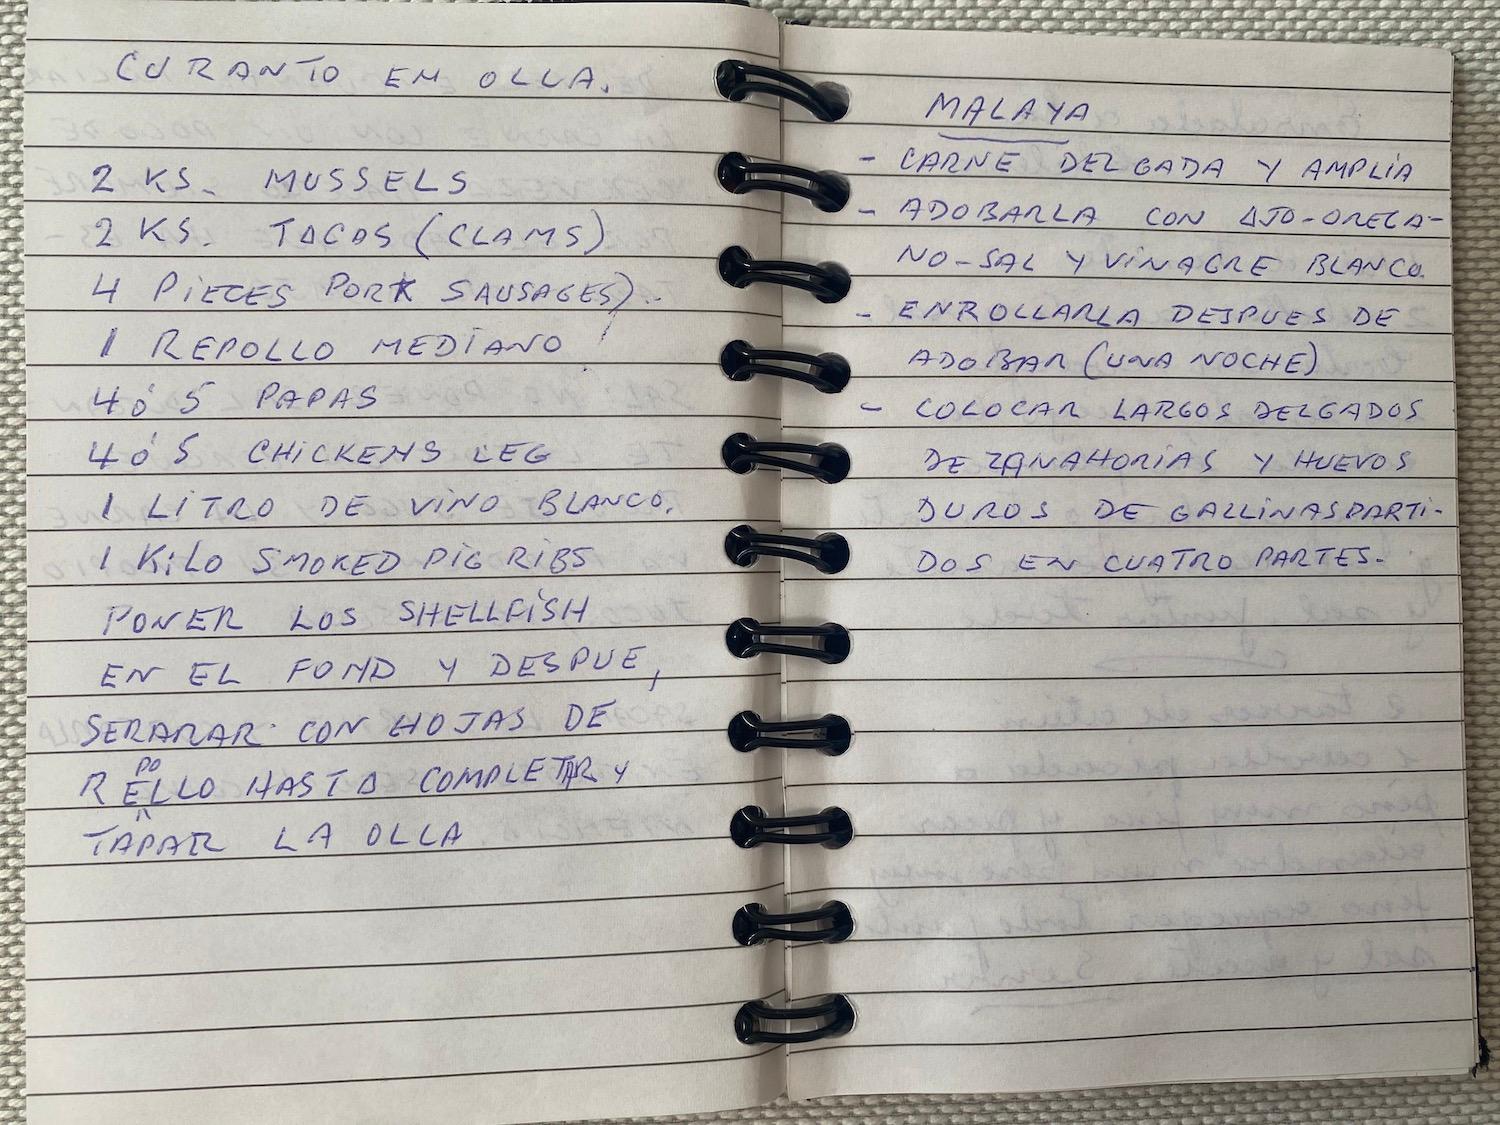 CURANTO EN OLLA.
2 KS. MUSSELS
2 KS. TACAS (CLAMS)
4 PIECES PORK SAUSAGES).
1 REPOLLO MEDIANO
4 ó 5 PAPAS
4 ó 5 CHICKENS LEG
1 LITRO DE VINO BLANCO.
1 KILO SMOKED PIG RIBS
PONER LOS SHELLFISH
EN EL FOND Y DESPUE,
SERARAR CON HOJAS DE
REPOLLO HASTA COMPLETAR Y
TAPAR LA OLLA
MALAYA
- CARNE DELGADA Y AMPLIA
- ADOBARLA CON AJO-OREGA-
NO-SAL Y VINAGRE BLANCO.
- ENROLLARLA DESPUES DE
ADOBAR (UNA NOCHE)
- COLOCAR LARGOS DELGADOS
DE ZANAHORIAS Y HUEVOS
DUROS DE GALLINAS PARTI-
DOS EN CUATRO PARTES.